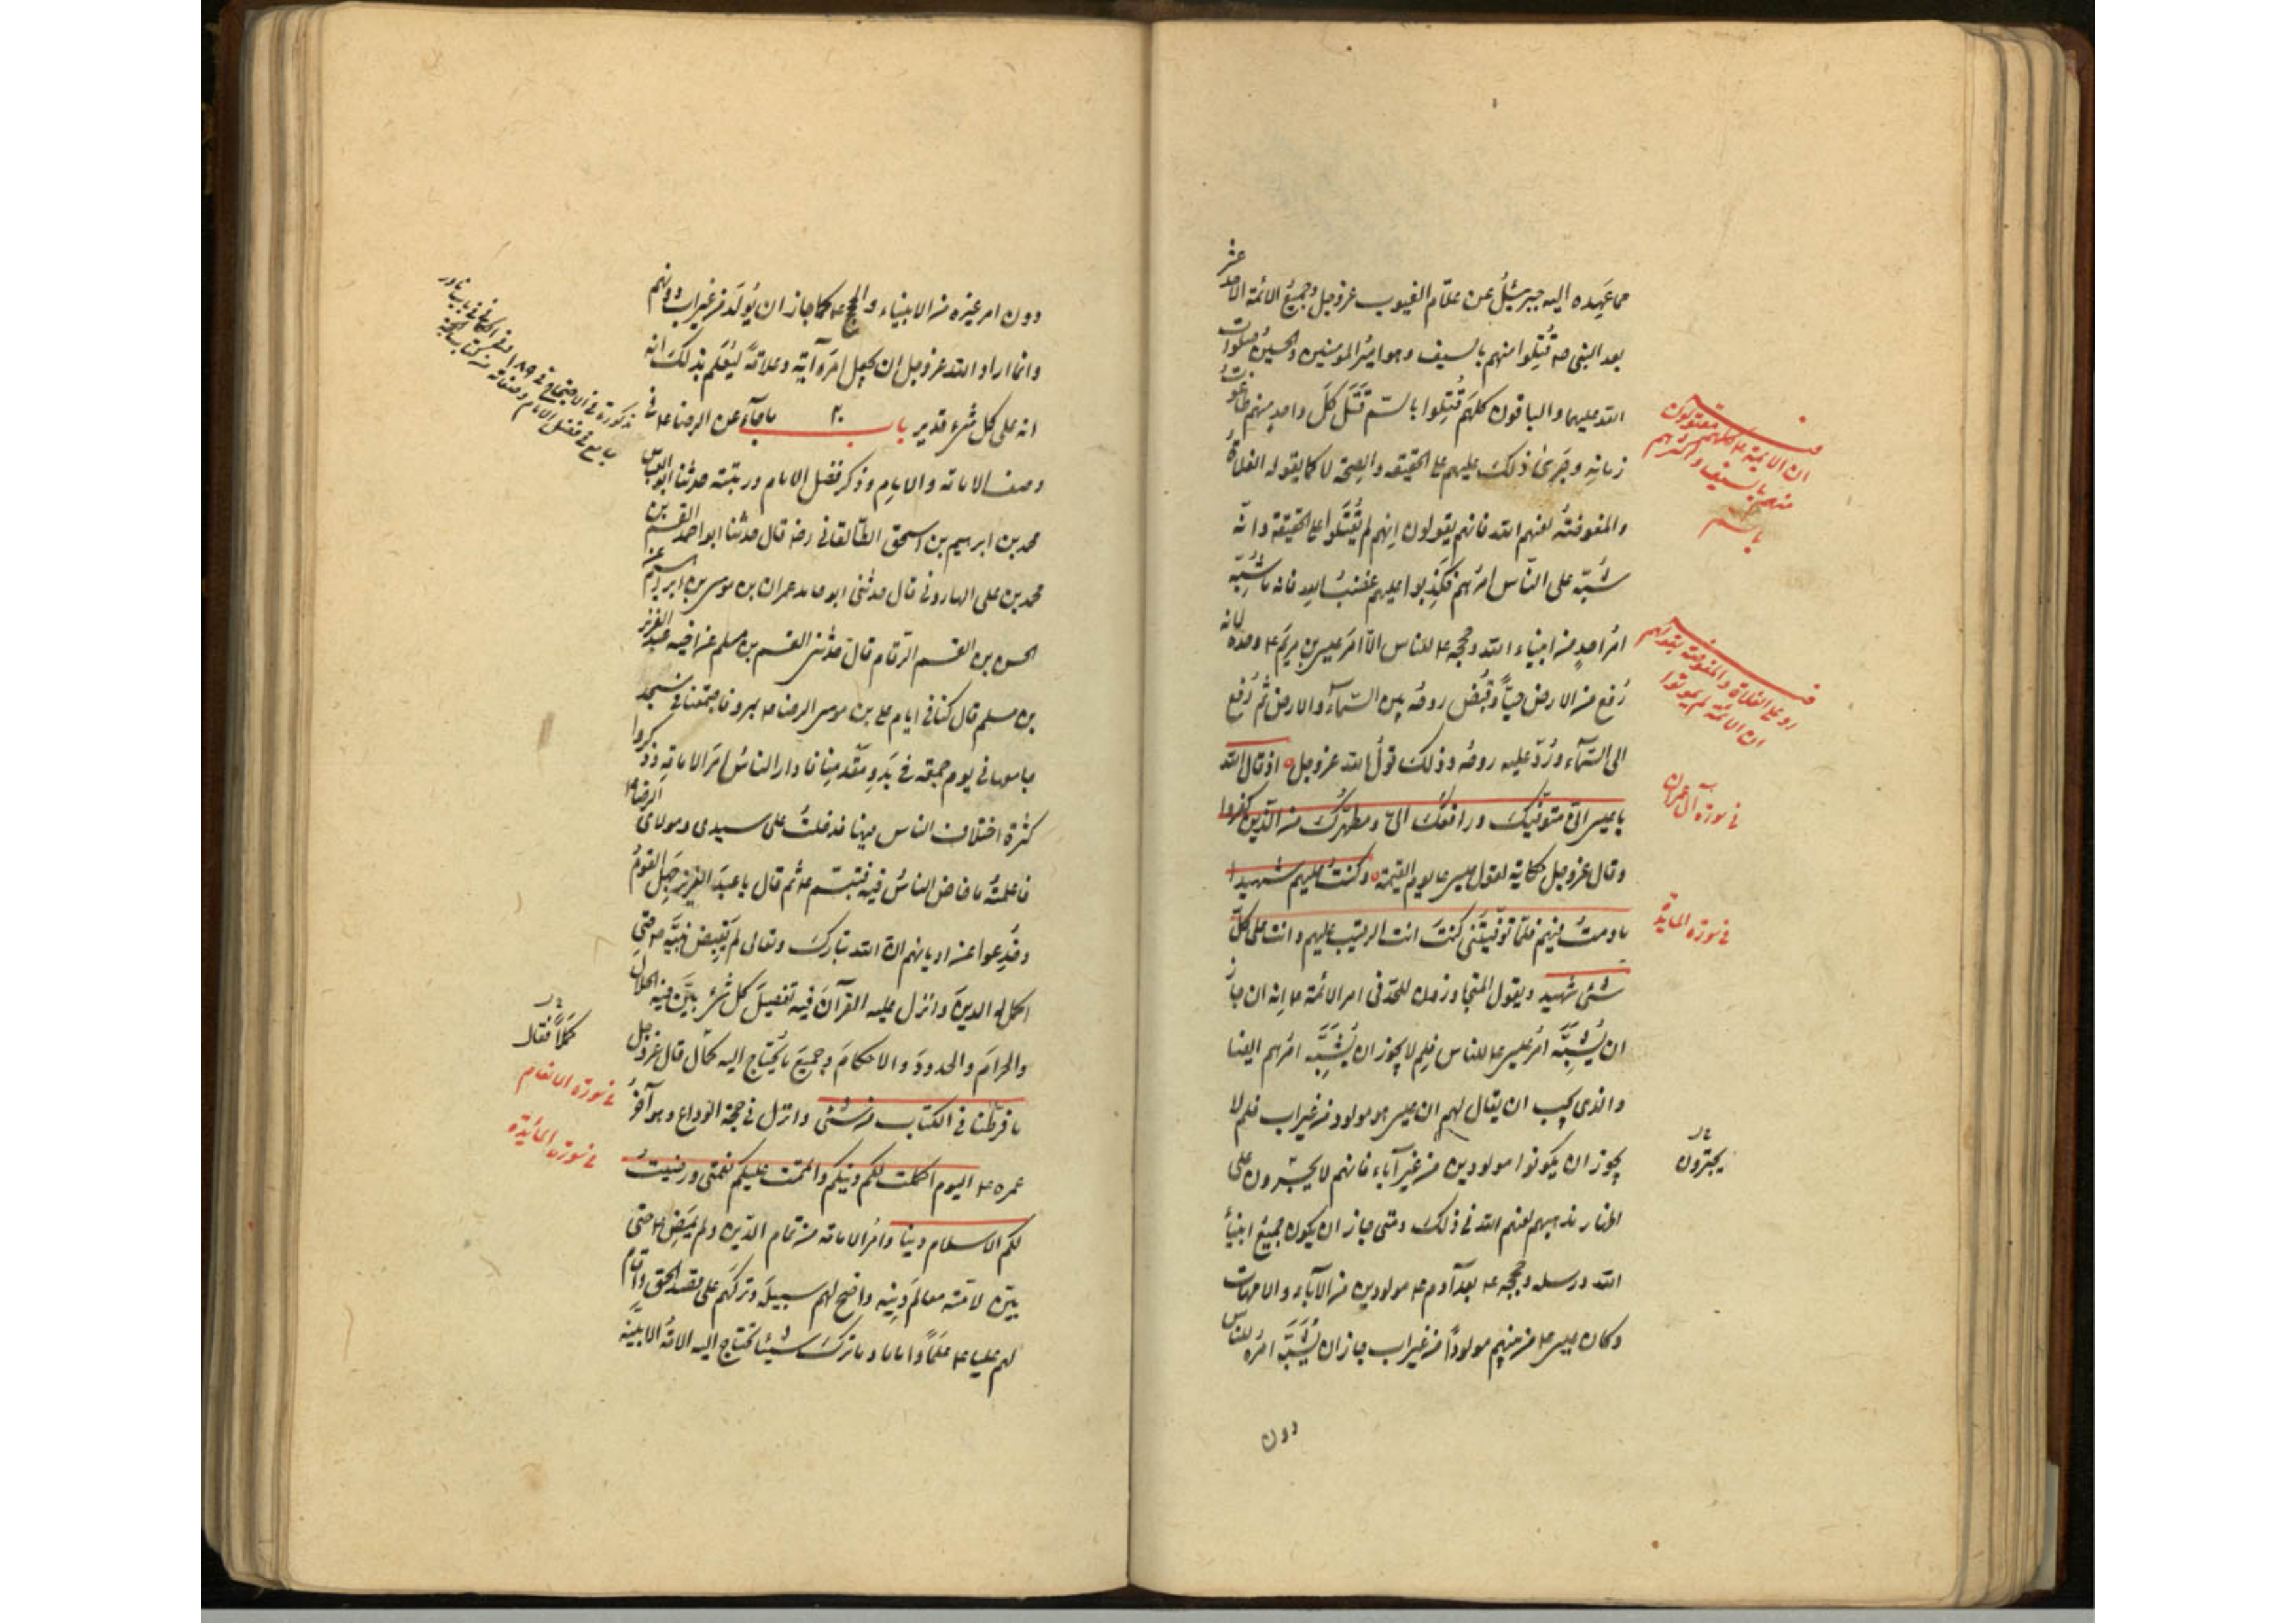 مما عَهِده اليه جبرئيلُ عن علّام الغيوب عزوجل وجميعُ الائمة الاحد عشر
بعد النبى صه قُتِلوا منهم بالسيف وهو اميرُ المومنين والحسينُ صلوات
الله عليهما والباقون كلهم قُتِلوا بالسّم قَتَلَ كلَّ واحدٍ منهم طاغوتُ
زمانِهِ وجَرىٰ ذلكَ عليهم على الحقيقه والصحة لا كما يقوله الغلاةُ
والمفوضةُ لعنهم الله فانهم يقولون اِنهم لم يُقتَلوا على الحقيقة وانه
شُبّهَ على الناس امرُهم فكَذِبوا عليهم غضبُ الله فانه ما شُبِّهَ
امرُ احدٍ من انبياء الله وحججه ع للناس الّا امرَ عيسى بن مريمَ ع وحده لانه
رُفعَ من الارض حيّاً وقُبُضَ روحُه بين السّماء والارض ثم رُفعَ
الى السّماء ورُدّ عليه روحُه وذلك قولُ الله عزوجل اذ قال الله
يا عيسى انّى متوفّيكَ ورافعُكَ الىّ ومطهّرُكَ من الّذين كفروا
وقال عزوجل حكاية لقول عيسى ع يوم القيمة وكنتُ عليهم شهيدا
ما دمتُ فيهم فلمّا توفّيتَنى كنتَ انت الرقيبَ عليهم وانت على كلّ
شئى شهيد ويقول المتجاوزون للحدّ فى امر الائمة ع اِنه ان جاز
ان يُشَبّهَ امرُ عيسى ع للناس فلِمَ لا يجوز ان يُشَبَّهَ امرُهم ايضا
والذى يجب ان يقال لهم ان عيسى هو مولود من غير اب فلم لا
يجوز ان يكونوا مولودين من غير آباء فانهم لا يجسرون على
اظهار مذهبهم لعنهم الله فى ذلك ومتى جاز ان يكون جميعُ انبياءِ
الله ورسله وحججه ع بعد آدم ع مولودين من الآباء والامهات
وكان عيسى ع من بينهم مولوداً من غير اب جاز ان يُشَبَّهَ امرُه للناس
دون
ان الائمة ع كلهم مقتولون
منهم بالسيف واكثرهم
بالسم
رد على الغلاة والمفوضة بقولهم
ان الائمة لم يموتوا
فى سورة آل عمران
فى سورة المايدة
يجترون
دون امر غيره من الانبياء والحجج ع كما جاز ان يُولَدَ من غير اب دونهم
وانما اراد الله عزوجل ان يجعل امرَه آيةً وعلامةً ليُعلَم بذلك انه
انه على كل شىء قدير باب ٢٠ ما جآء عن الرضا ع فى
وصف الامامة والامام وذكر فضل الامام ورتبته حدثنا ابو العباس
محمد بن ابرهيم بن اسحق الطالقانى رضه قال حدثنا ابو احمد القسم بن
محمد بن على الهارونى قال حدثنى ابو حامد عمران بن موسى بن ابرهيم عن
الحسن بن القسم الرّقام قال حدّثنى القسم بن مسلم عن اخيه عبد العزيز
بن مسلم قال كنا فى ايام على بن موسى الرضا ع بمرو فاجتمعنا فى مسجد
جامعها فى يوم جمعة فى بَدوِ مقدمِنا فادار الناسُ امرَ الامامة وذكروا
كثرة اختلاف الناس فيها فدخلتُ على سيدى ومولاى الرضا ع
فاعلمتُه ما خاض الناسُ فيه فتبسّم ع ثم قال يا عبدَ العزيز جَهِلَ القومُ
وخُدِعوا عن اديانهم انّ الله تبارك وتعالى لم يَقبِض نبيَّه ص حتى
اكمل له الدينَ وانزل عليه القرآنَ فيه تفصيلُ كل شىء بيّن فيه الحلالَ
والحرامَ والحدودَ والاحكامَ وجميعَ ما يُحتاج اليه كمّلا قال عزوجل
ما فرطنا فى الكتاب من شئى وانزل فى حجة الوداع وهو آخرُ
عمره ع اليوم اكملت لكم دينكم واتممت عليكم نعمتى ورضيتُ
لكم الاسلام دينا وامرُ الامامة من تمام الدّين ولم يَمضِ ع حتى
بيّن لامته معالمَ دينِه واضح لهم سبيلَه وتركهم على قصد الحق واقام
لهم عليا ع علَماً واماما وما ترك شيئا تحتاج اليه الامةُ الا بيّنه
كملاً فقال
فى سورة الانعام
فى سورة المايدة